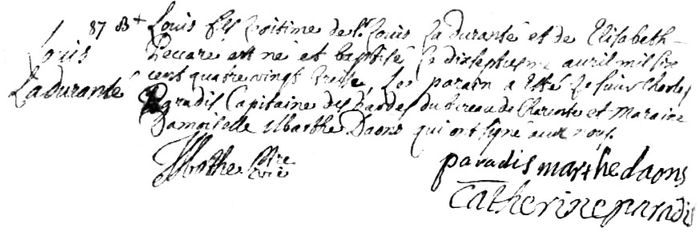 87 Bt Louis fils légitime de Sr Louis Ladurante et de Elisabeth
Louis
Ladurante
Peccare est né et baptisé le dixseptiesme avril mil six
cent quatre vingt treise, Les parain a esté le sieur Charles
Paradis Capitaine des Gardes du bureau de Charente et Maraine
Damoiselle Marthe Daons qui ont signé avec nous
paradis marthe daons
Catherine paradis